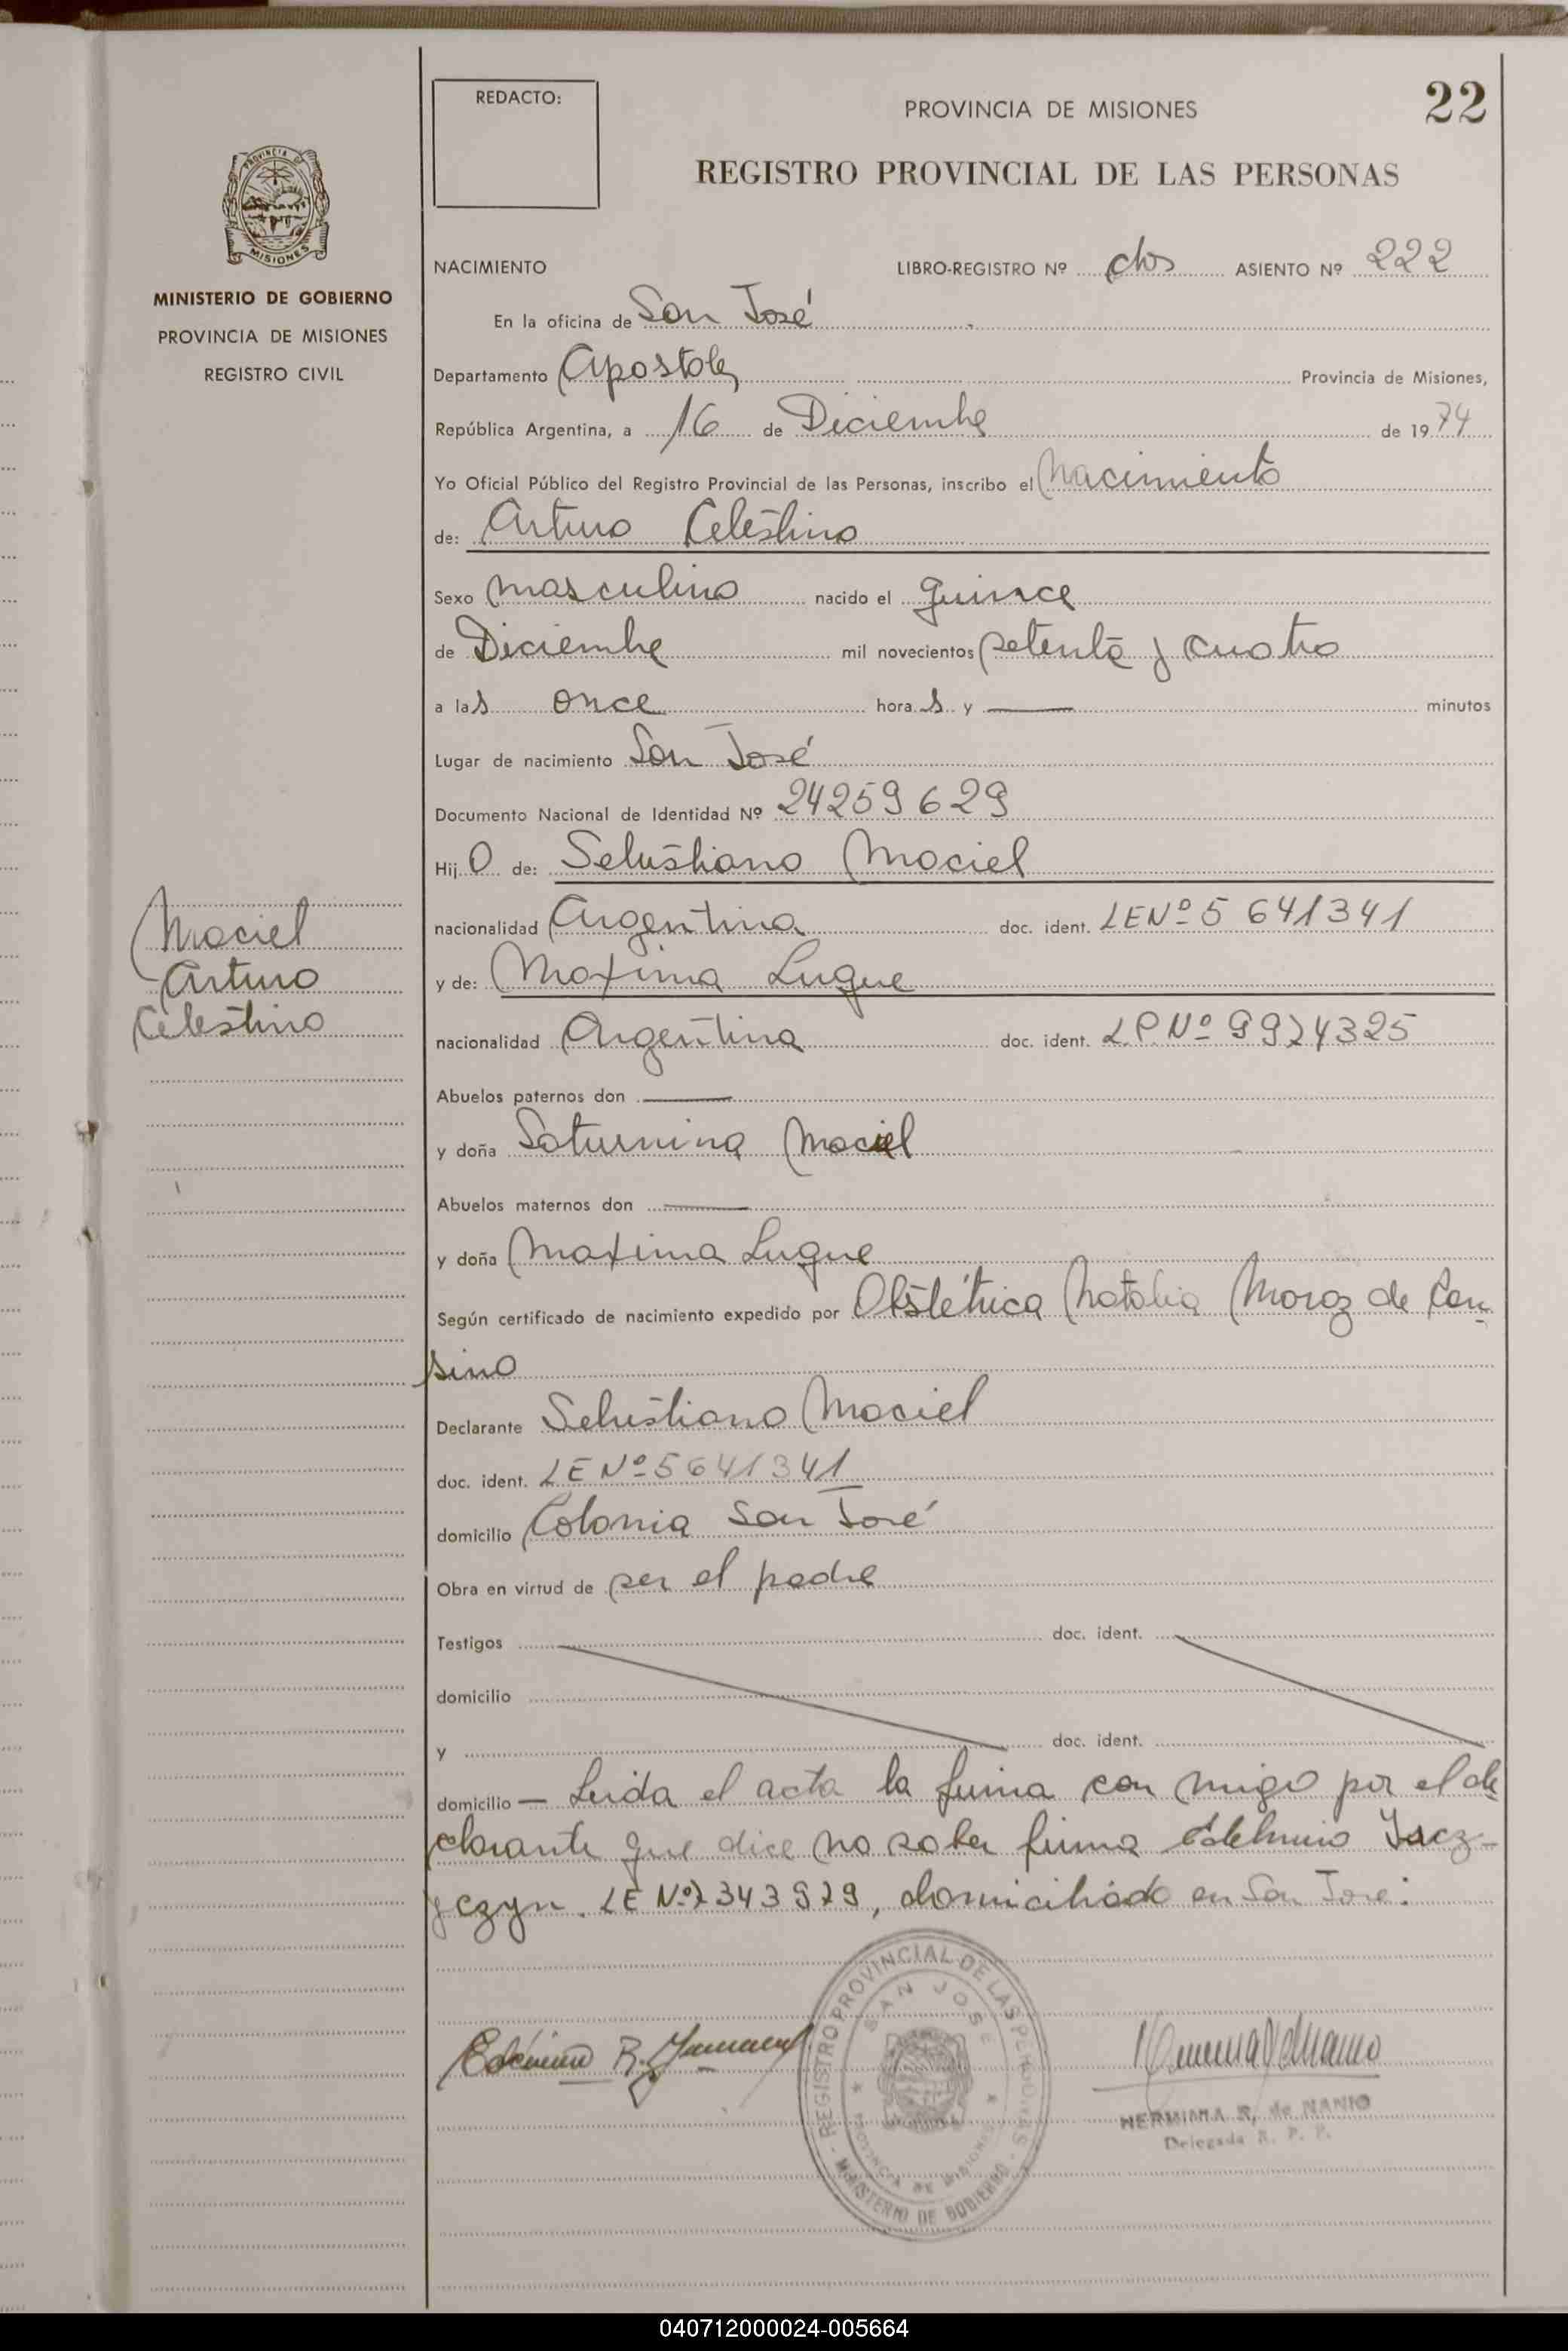 22
REDACTO:
PROVINCIA DE MISIONES
REGISTRO PROVINCIAL DE LAS PERSONAS
PROVINCIA DE
MISIONES
MINISTERIO DE GOBIERNO
PROVINCIA DE MISIONES
REGISTRO CIVIL
NACIMIENTO LIBRO-REGISTRO Nº dos ASIENTO Nº 222
En la oficina de San José
Departamento Apostoles Provincia de Misiones,
República Argentina, a 16 de Diciembre de 1974
Yo Oficial Público del Registro Provincial de las Personas, inscribo el Nacimiento
de: Arturo Celestino
Sexo Masculino nacido el quince
de Diciembre mil novecientos setenta y cuatro
a las once horas y — minutos
Lugar de nacimiento San José
Documento Nacional de Identidad Nº 24259629
Hijo de: Sebastiano Maciel
nacionalidad Argentina doc. ident. LE Nº 5641341
y de: Maxima Luque
nacionalidad Argentina doc. ident. L.P. Nº 9924325
Maciel
Arturo
Celestino
Abuelos paternos don —
y doña Saturnina Maciel
Abuelos maternos don —
y doña Maxima Luque
Según certificado de nacimiento expedido por Obstétrica Natalia Moroz de Can-
sino
Declarante Sebastiano Maciel
doc. ident. LE Nº 5641341
domicilio Colonia San José
Obra en virtud de ser el padre
Testigos doc. ident.
domicilio
y doc. ident.
domicilio — Leida el acta la firma con migo por el de
clarante que dice no saber firma Edelmiro
LE Nº 2343929, domiciliado en San José.
REGISTRO PROVINCIAL DE LAS PERSONAS
SAN JOSE
PROVINCIA DE MISIONES
MINISTERIO DE GOBIERNO
HERMINIA R. de NANIO
Delegada R. P. P.
040712000024-005664